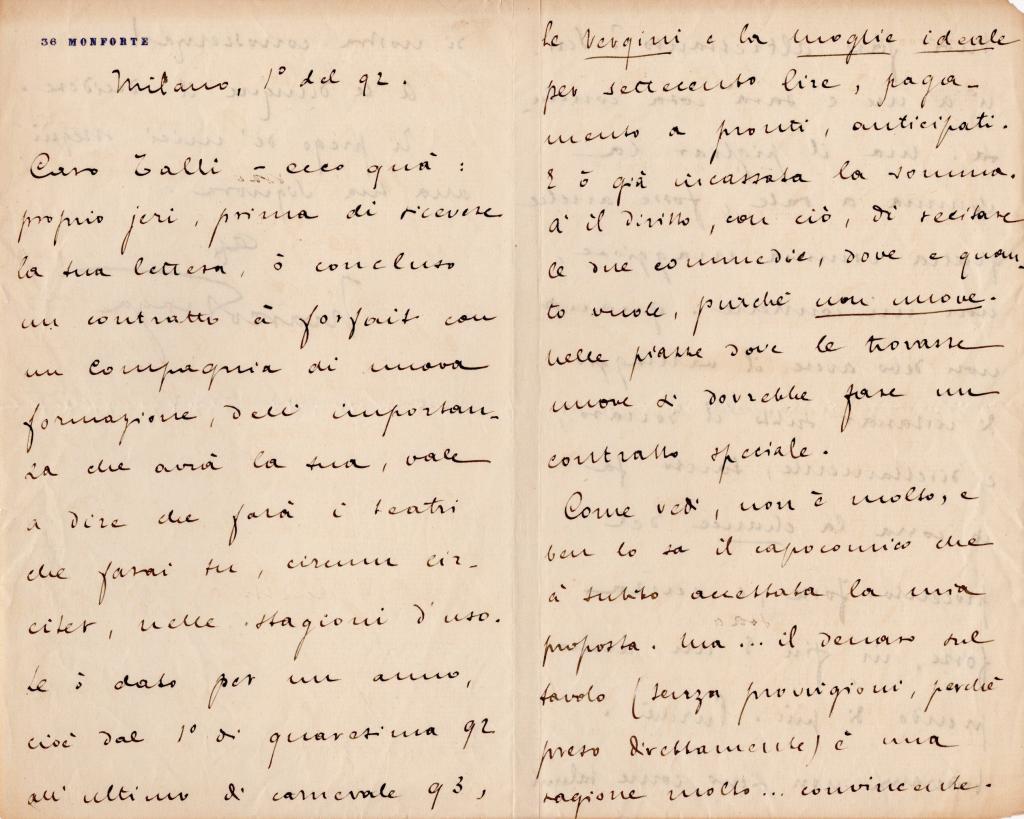 36 MONFORTE
Milano, 1º del 92.
Caro Talli – ecco quà:
proprio jeri, prima di ricevere
la tua lettera, ò concluso
un contratto à forfait con
un Compagnia di nuova
formazione, dell' importan-
za che avrà la tua, vale
a dire che farà i teatri
che farai tu, circum cir-
citer, nelle stagioni d'uso.
Le ò dato per un anno,
cioè dal 1º di quaresima 92
all' ultimo di carnevale 93,
Le Vergini e la moglie ideale
per settecento lire, paga-
mento a pronti, anticipati.
E ò già incassata la somma.
à il diritto, con ciò, di recitare
le due commedie, dove e quan-
to vuole, purchè non nuove.
nelle piazze dove le trovasse
nuove si dovrebbe fare un
contratto speciale.
Come vedi, non è molto, e
ben lo sa il capocomico che
à subito accettata la mia
proposta. Ma... il denaro sul
tavolo (senza provvigioni, perchè
preso direttamente) è una
ragione molto... convincente.